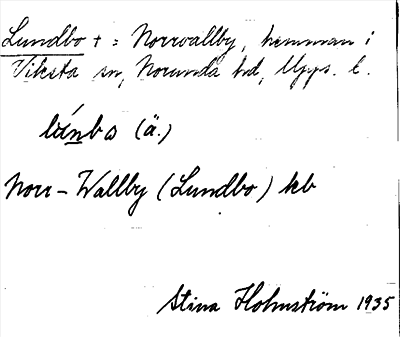 Lundbo + = Norrvallby, hemman i
Viksta sn, Norunda hd, Upps. l.
lúnbo (ä.)
Norr-Wallby (Lundbo) kb
Stina Holmström 1935